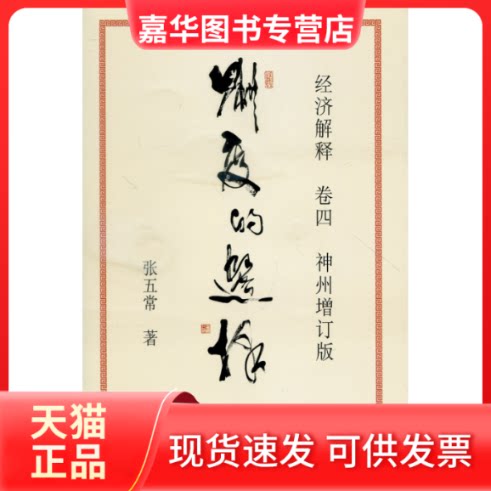 嘉华图书专营店
经济解释 卷四 神州增订版
制度的选择
张五常 著
天猫
正品
现货速发 可供发票